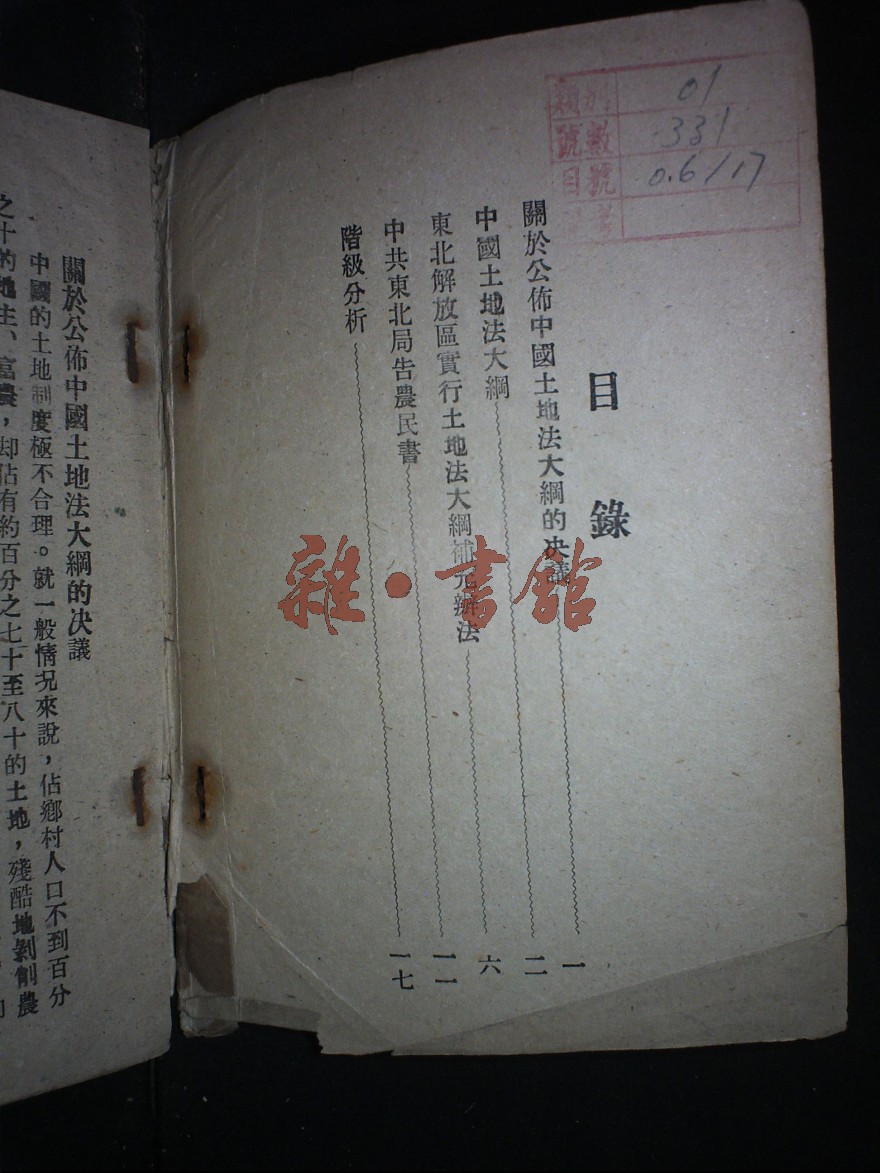 類別 01
號數 331
目號 0.6/17
目錄
關於公佈中國土地法大綱的決議 一
中國土地法大綱 二
東北解放區實行土地法大綱補充辦法 六
中共東北局告農民書 一一
階級分析 一七
雜·書館
關於公佈中國土地法大綱的决議
中國的土地制度極不合理。就一般情况來說，佔鄉村人口不到百分
之十的地主、富農，却佔有約百分之七十至八十的土地，殘酷地剝削農